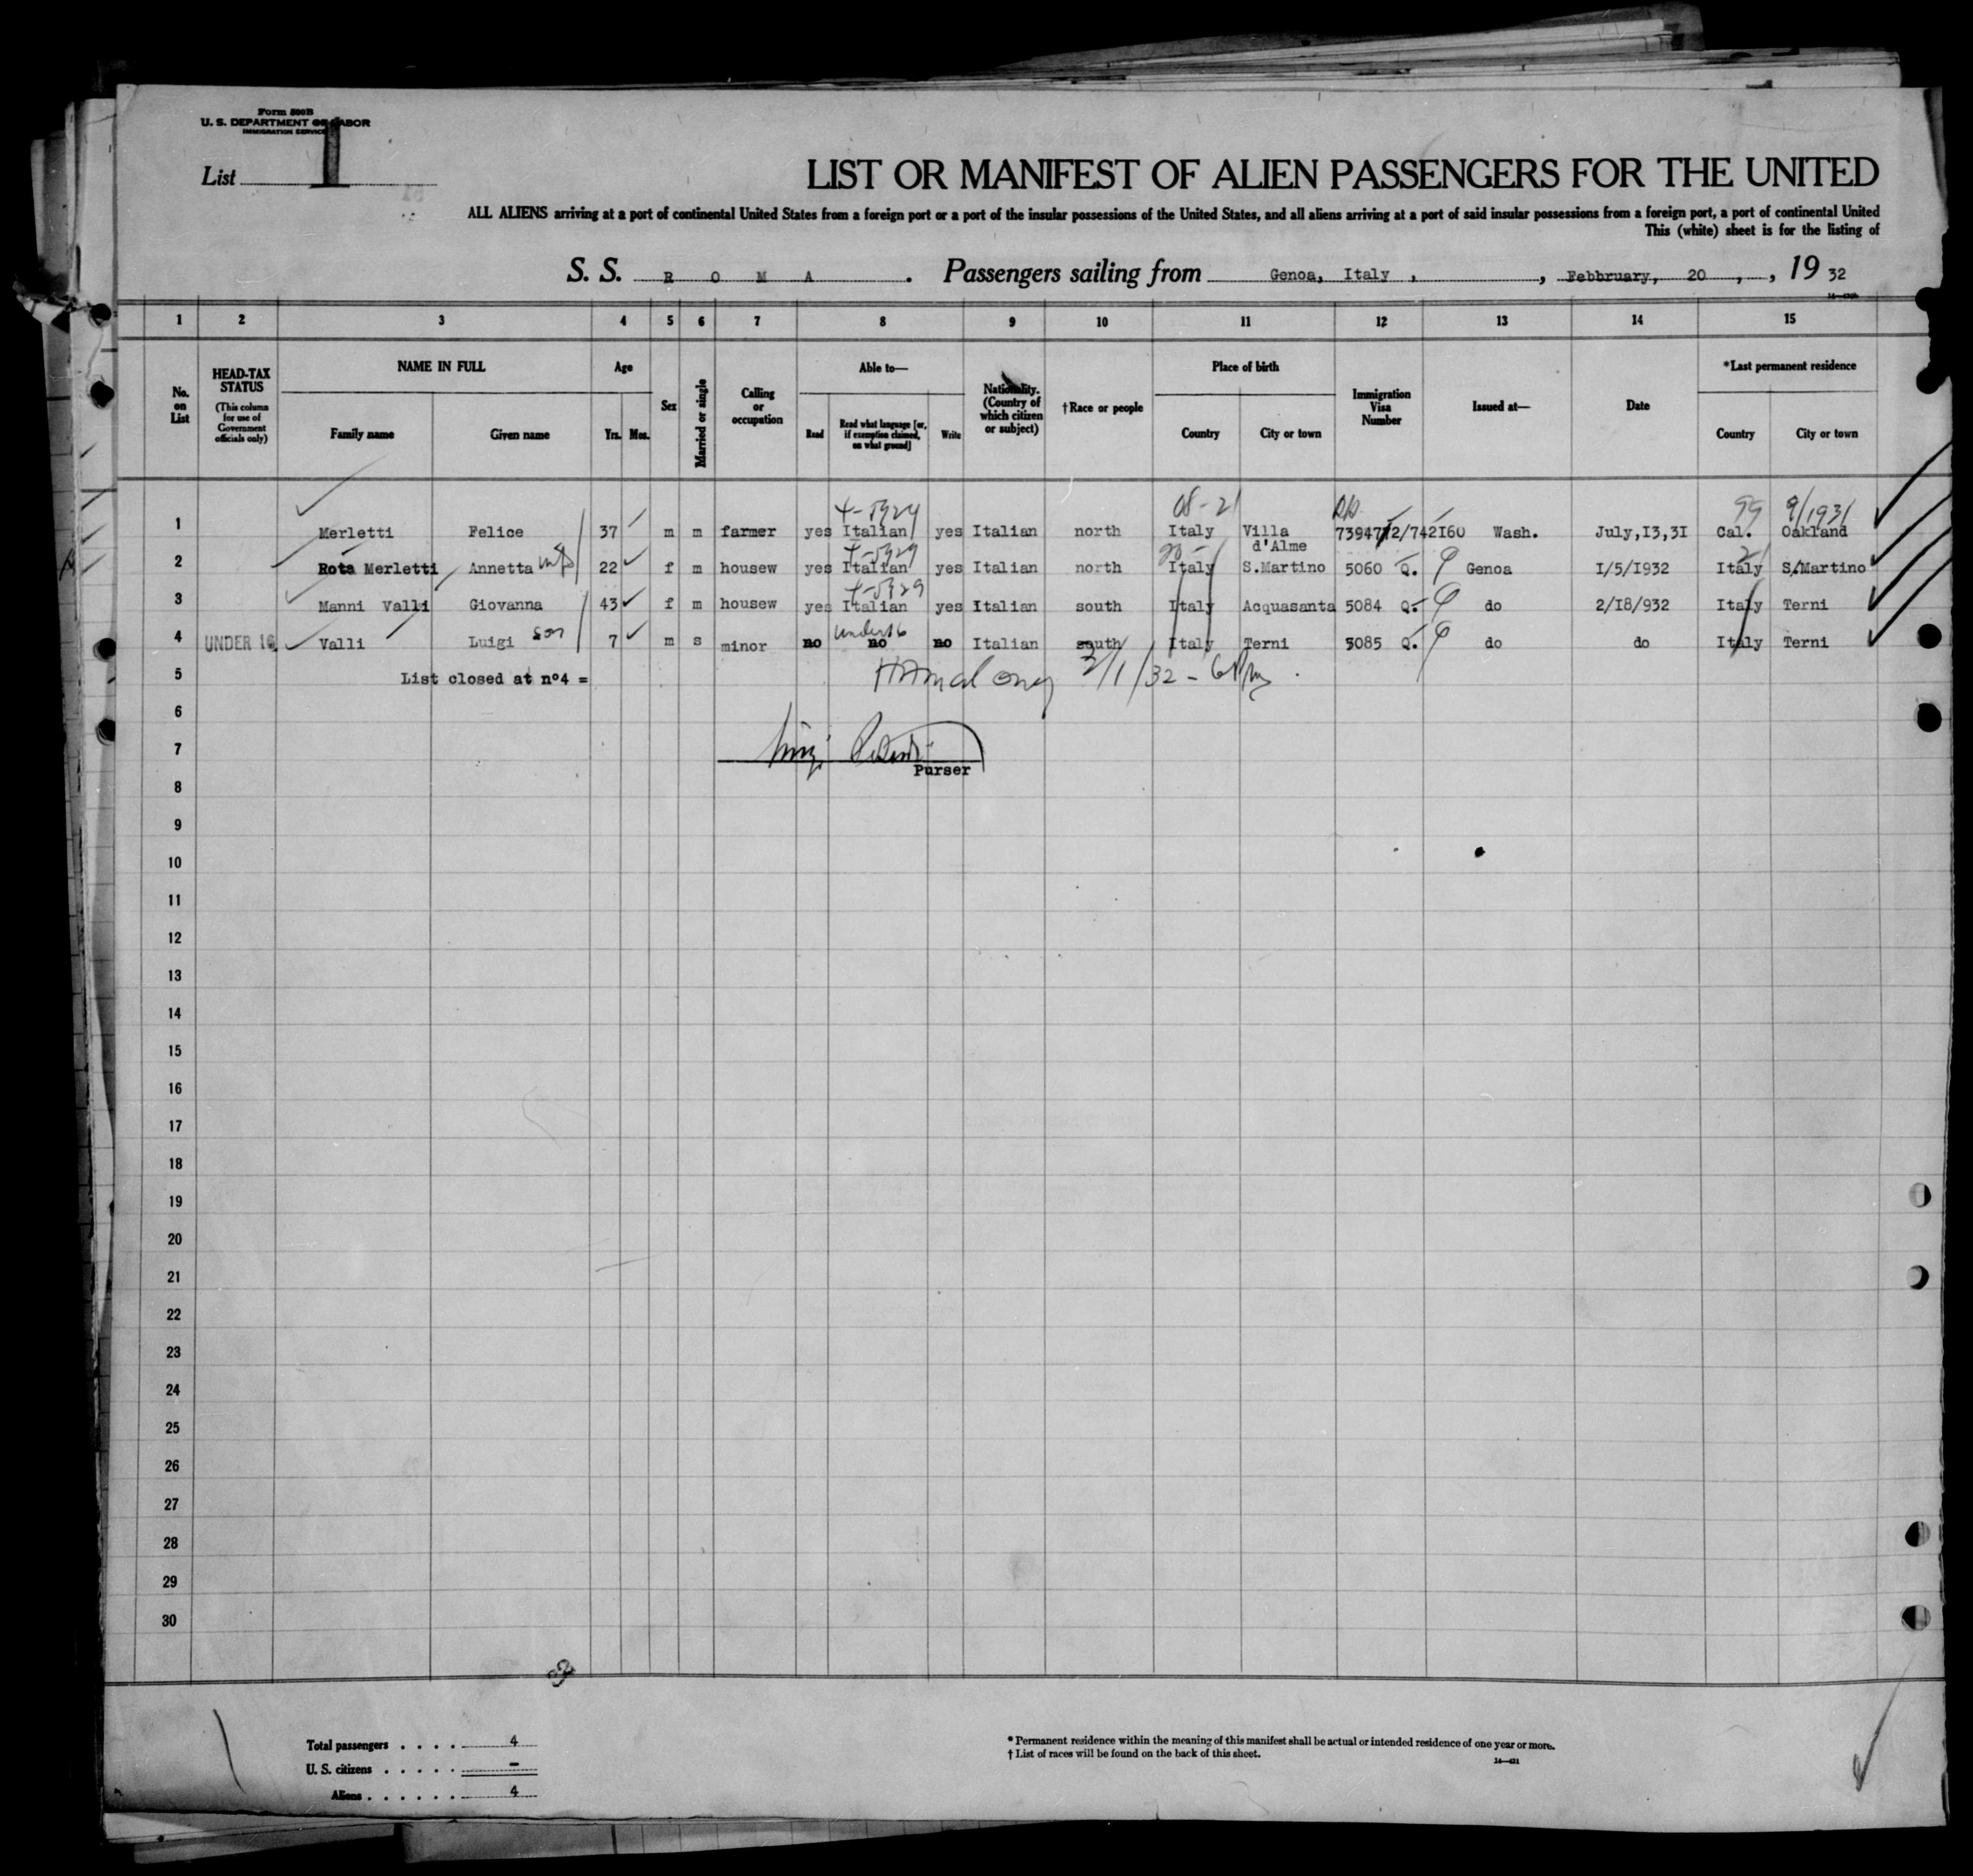 Form 500B
U. S. DEPARTMENT OF LABOR
IMMIGRATION SERVICE
List 1
LIST OR MANIFEST OF ALIEN PASSENGERS FOR THE UNITED
ALL ALIENS arriving at a port of continental United States from a foreign port or a port of the insular possessions of the United States, and all aliens arriving at a port of said insular possessions from a foreign port, a port of continental United
This (white) sheet is for the listing of
S. S. R O M A . Passengers sailing from Genoa, Italy , , Febbruary, 20 , , 19 32
1 2 3 4 5 6 7 8 9 10 11 12 13 14 15
No. on List
HEAD-TAX STATUS
(This column for use of Government officials only)
NAME IN FULL
Family name Given name
Age
Yrs. Mos.
Sex
Married or single
Calling or occupation
Able to—
Read
Read what language [or, if exemption claimed, on what ground]
Write
Nationality. (Country of which citizen or subject)
†Race or people
Place of birth
Country City or town
Immigration Visa Number
Issued at—
Date
*Last permanent residence
Country City or town
99 9/1931
1 Merletti Felice 37 m m farmer yes Italian yes Italian north Italy Villa d'Alme 739471 2/742I60 Wash. July,I3,3I Cal. Oakland
2 Rota Merletti Annetta wife 22 f m housew yes Italian yes Italian north Italy S.Martino 5060 Q. Genoa I/5/I932 Italy S.Martino
3 Manni Valli Giovanna 43 f m housew yes Italian yes Italian south Italy Acquasanta 5084 Q. do 2/I8/932 Italy Terni
under 16
4 UNDER 16 Valli Luigi son 7 m s minor no no no Italian south Italy Terni 5085 Q. do do Italy Terni
5 List closed at n°4 =
3/1/32
6
7
Purser
8
9
10
11
12
13
14
15
16
17
18
19
20
21
22
23
24
25
26
27
28
29
30
Total passengers . . . . 4
U. S. citizens . . . . . -
Aliens . . . . . . 4
* Permanent residence within the meaning of this manifest shall be actual or intended residence of one year or more.
† List of races will be found on the back of this sheet.